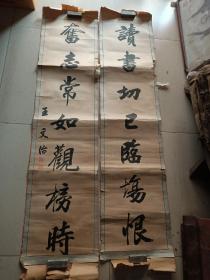 讀書切己臨場恨
奮志常如觀榜時
王文治